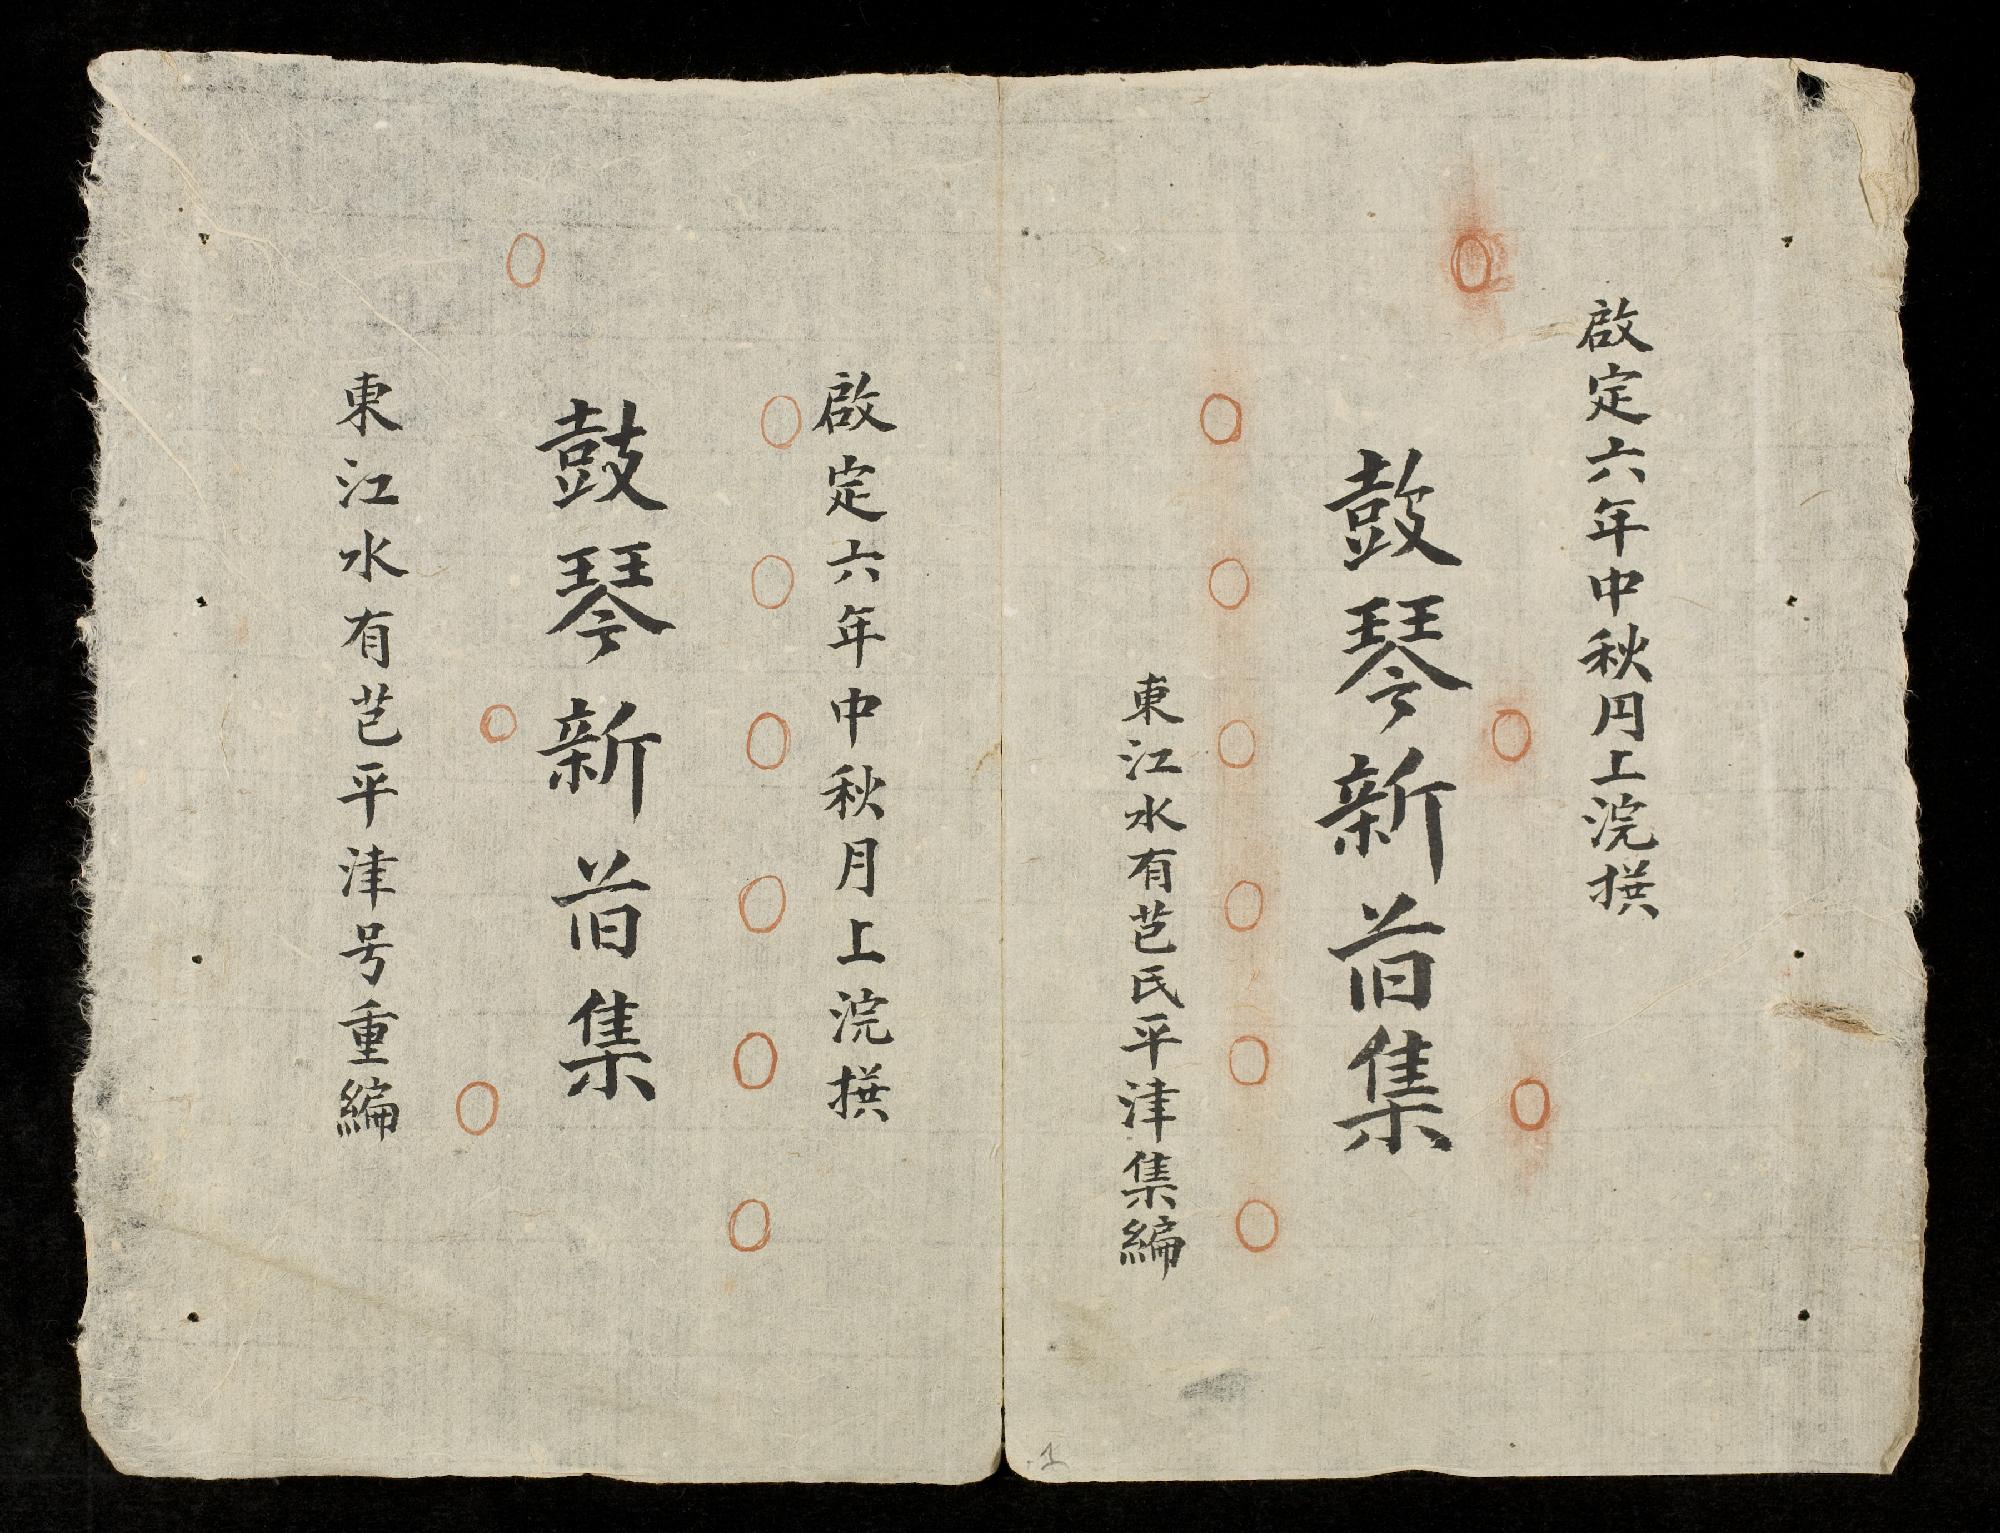 啟定六年中秋円上浣撰
鼔琴新䒤集
東江水有芑氏平津集編
啟定六年中秋月上浣撰
鼓琴新䒤集
東江水有芑平津号重編
1